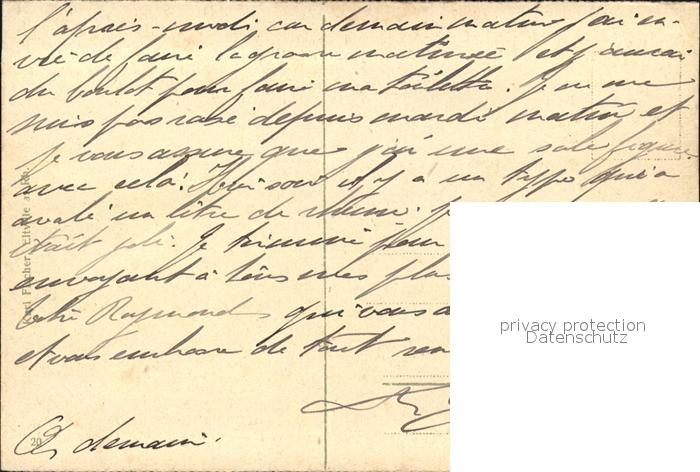 l'après-midi car demain matin j'ai en-
vie de faire la grasse matinée et j'aurai
du boulot pour faire ma toilette. Je ne me
suis pas rasé depuis mardi matin et
je vous assure que j'ai une sale figure
avec cela! Hier soir il y a un type qui a
avalé un litre de rhum.
était joli. Je termine pour
envoyant à tous mes plus
Votre Raymond qui vous
et vous embrasse de tout son
A demain.
Karl Fischer, Eltville a. Rh.
20
privacy protection
Datenschutz